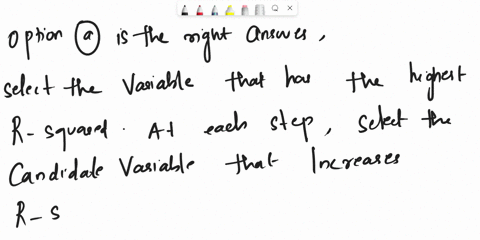 option (a) is the right answer,
select the Variable that has the highest
R-squared. At each step, select the
Candidate Variable that Increases
R-s